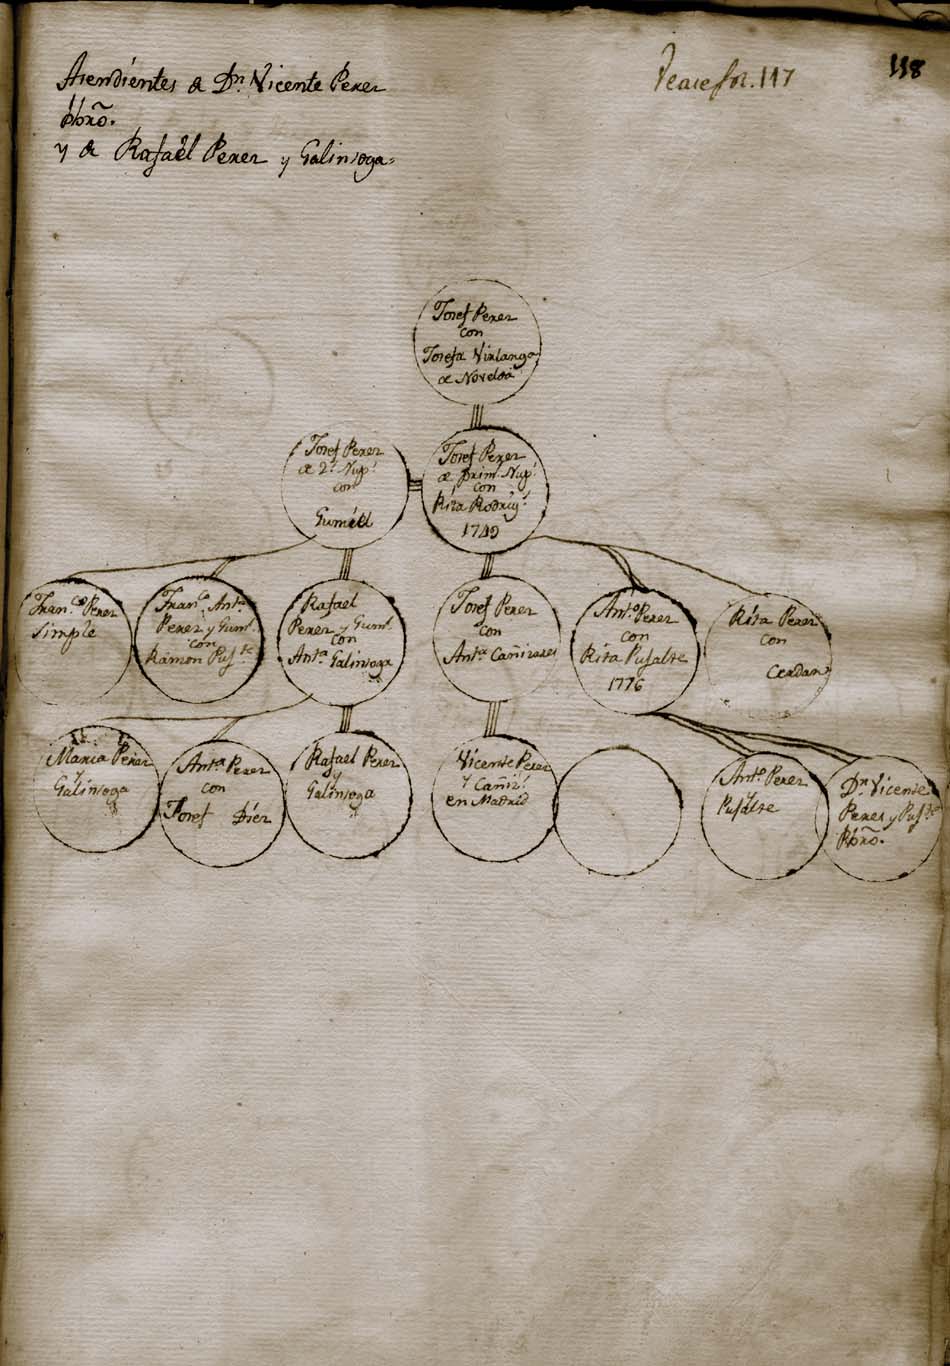 Asendientes de Dn. Vicente Perez
Pbro.
y de Rafaél Perez y Galinsoga.
Vease fol. 117
118
Josef Perez
con
Josefa Virlanga
de Novelda
Josef Perez
de 2.s Nup.s
con
Gumiel
Josef Perez
de prim.s Nup.s
con
Rita Rodrig.s
1749
Fran.co Perez
simple
Fran.ca Ant.a
Perez y Gum.l
con
Ramon Puj.te
Rafael
Perez y Gum.l
con
Ant.a Galinsoga
Josef Perez
con
Ant.a Cañizares
Ant.o Perez
con
Rita Pujalte
1776
Rita Perez
con
Cerdan
Maria Perez
y
Galinsoga
Ant.a Perez
con
Josef Diez
Rafael Perez
y
Galinsoga
Vicente Perez
y Cañiz.s
en Madrid
Ant.o Perez
y
Pujalte
Dn. Vicente
Peres y Puj.te
Pbro.